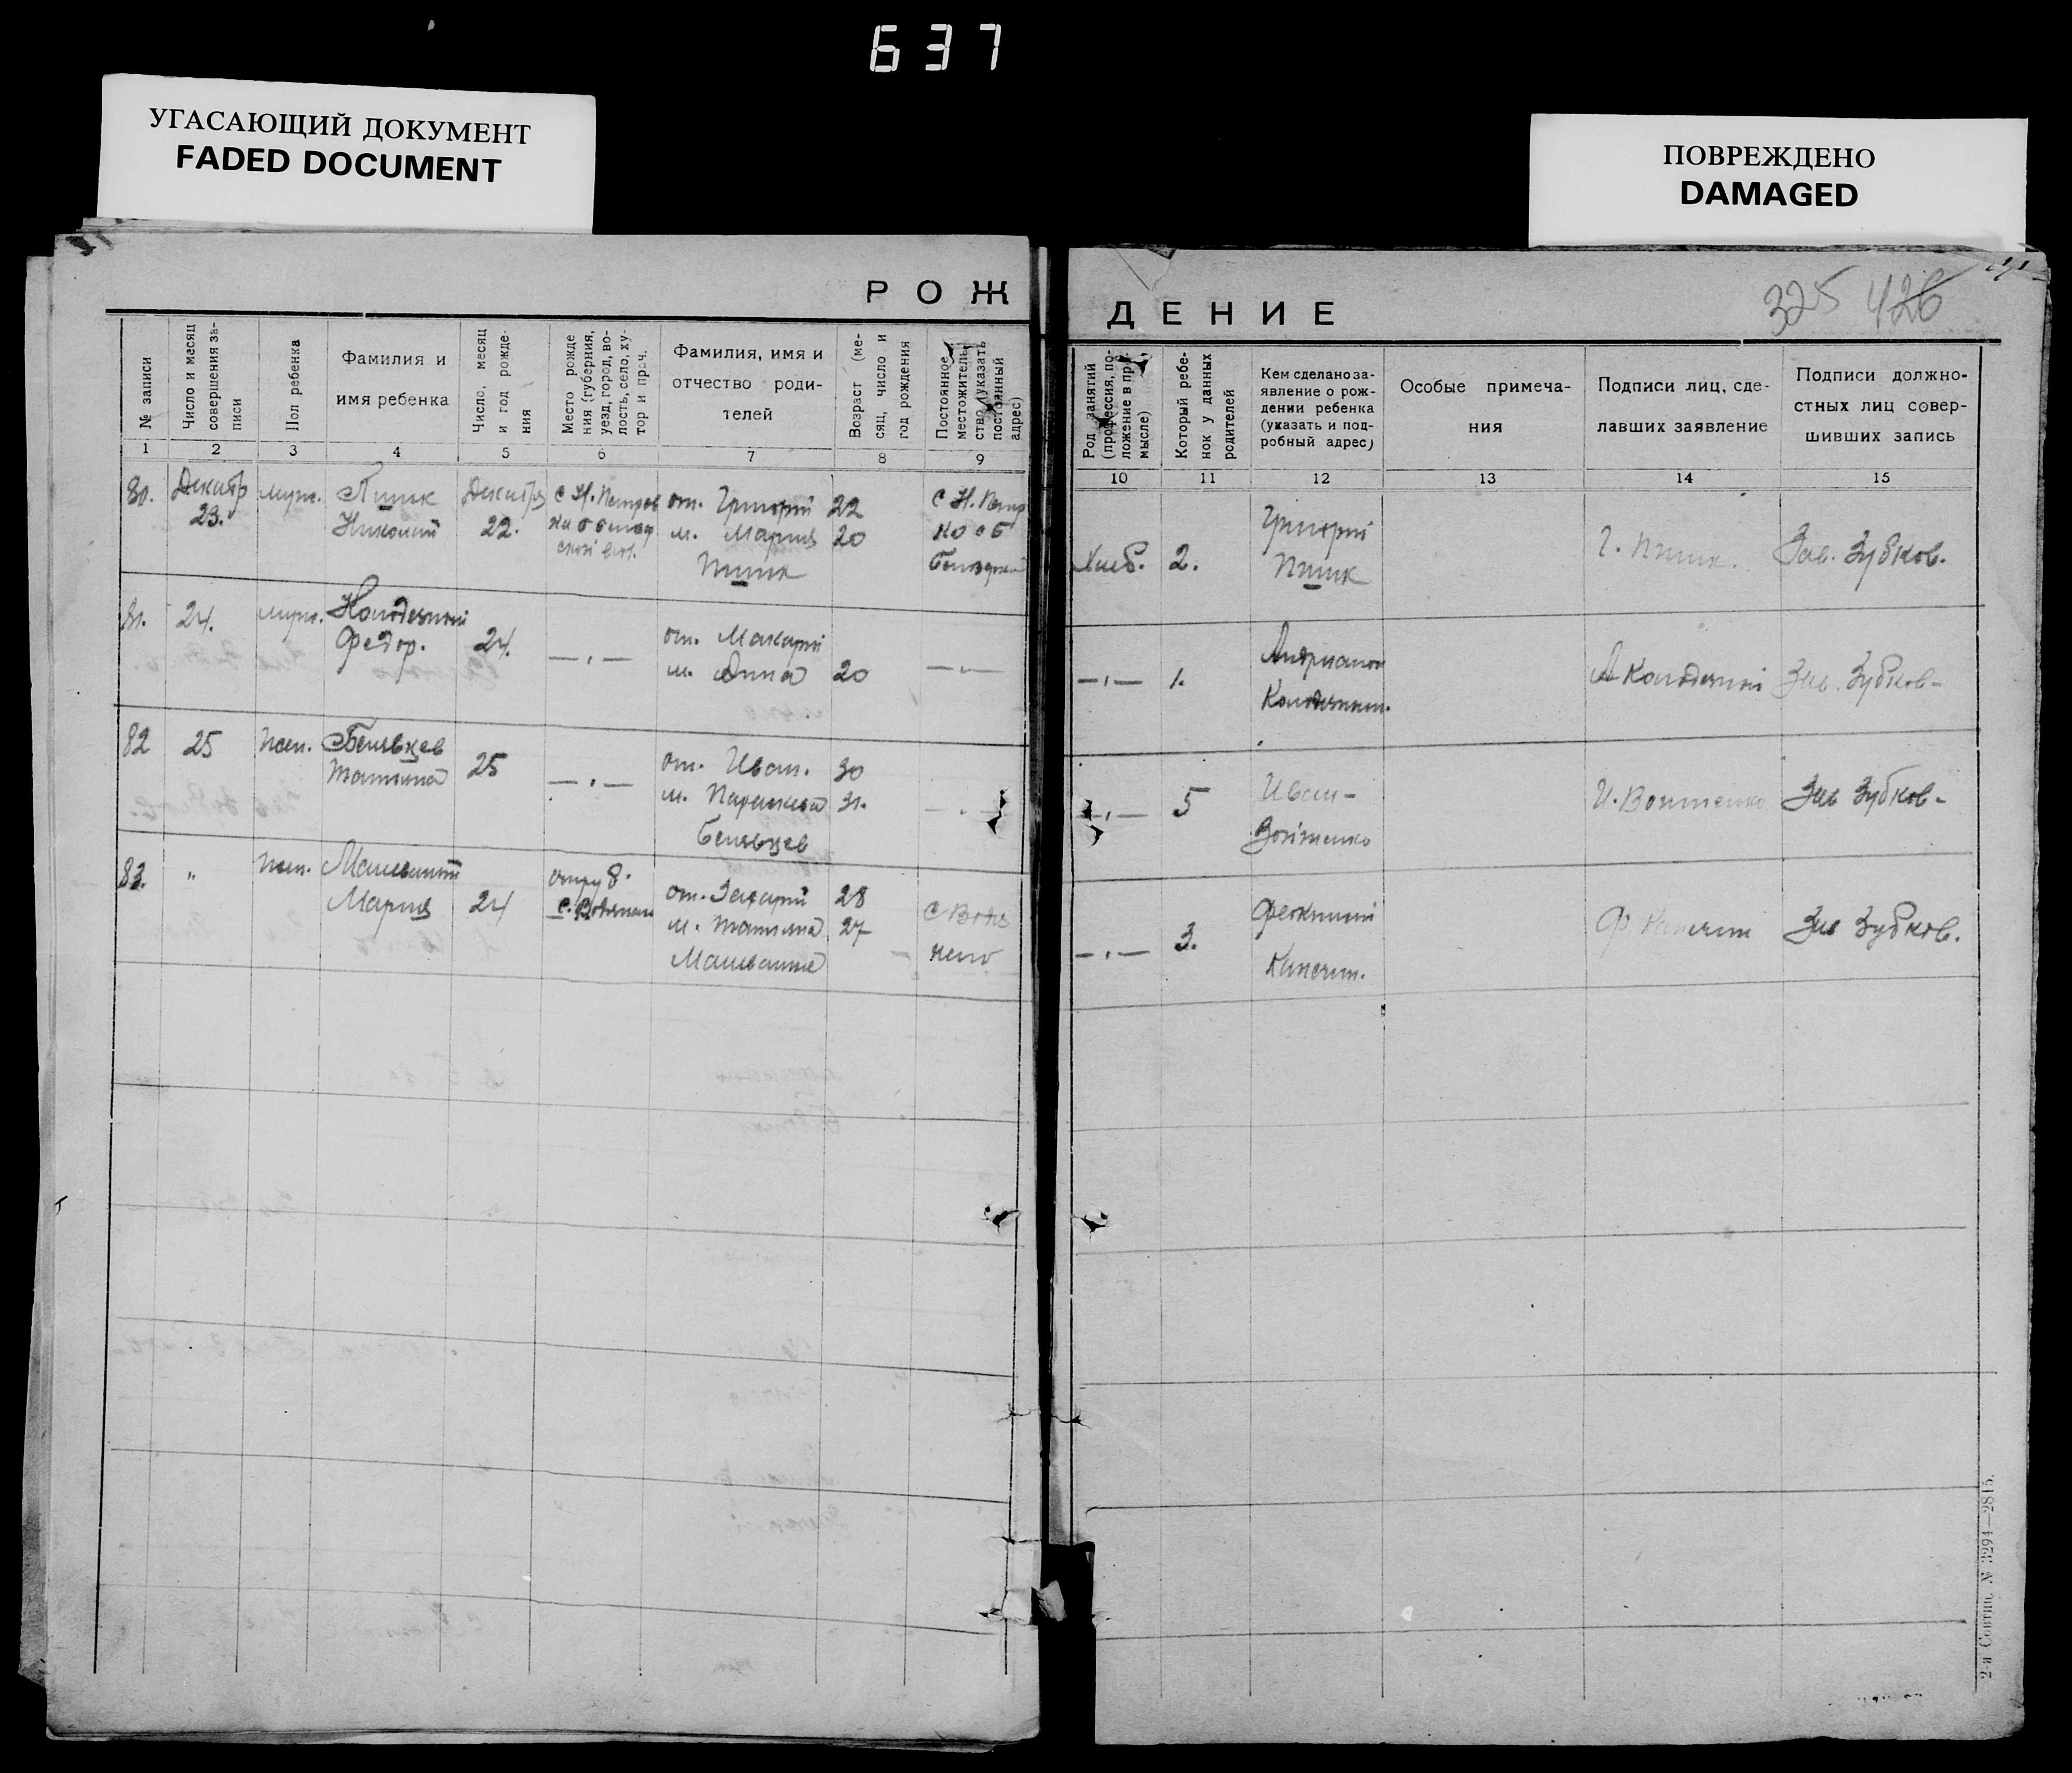 637
УГАСАЮЩИЙ ДОКУМЕНТ
FADED DOCUMENT
ПОВРЕЖДЕНО
DAMAGED
РОЖ
ДЕНИЕ
325 426
№ записи
Число и масяц
совершения за-
писи
Пол ребенка
Фамилия и
имя ребенка
Число, месяц
и год рожде-
ния
Место рожде
ния (губерния,
уезд, город, во-
лость, село, ху-
тор и проч.
Фамилия, имя и
отчество роди-
телей
Возраст (ме-
сяц, число и
год рождения
Постоянное
местожитель-
ство (указать
постоянный
адрес)
Род занятий
(профессия, по-
ложение в про-
мысле)
Который ребе-
нок у данных
родителей
Кем сделано за-
явление о рож-
дении ребенка
(указать и под-
робный адрес)
Особые примеча-
ния
Подписи лиц, сде-
лавших заявление
Подписи должно-
стных лиц совер-
шивших запись
1 2 3 4 5 6 7 8 9
10 11 12 13 14 15
80.
Декабр
23.
муж.
Пшик
Николай
Декабря
22.
с Н. Петров
от. Григорий 22
м. Мария 20
Пшик
с Н. Петр
Хлеб. 2.
Григорий
Пшик
Г. Пшик.
Зав. Зубков.
81. 24. муж.
Колодезный
Федор.
24.
—"—
от. Макарий
м. Анна 20
—"—
—"— 1.
Колодезный
А Колодезный
Зав. Зубков-
82 25 жен.
Белявцев
Татьяна
25
—"—
от. Иван. 30
м. Параскева 31.
Белявцев
—"—
—"— 5
Иван-
Войтенко
И. Войтенко
Зав Зубков-
83. " жен.
Мария
24
от. Захарий 28
м. Татьяна 27
с Водя
ного
—"— 3.
Зав Зубков.
2-я Совтип. № 3294—2815.